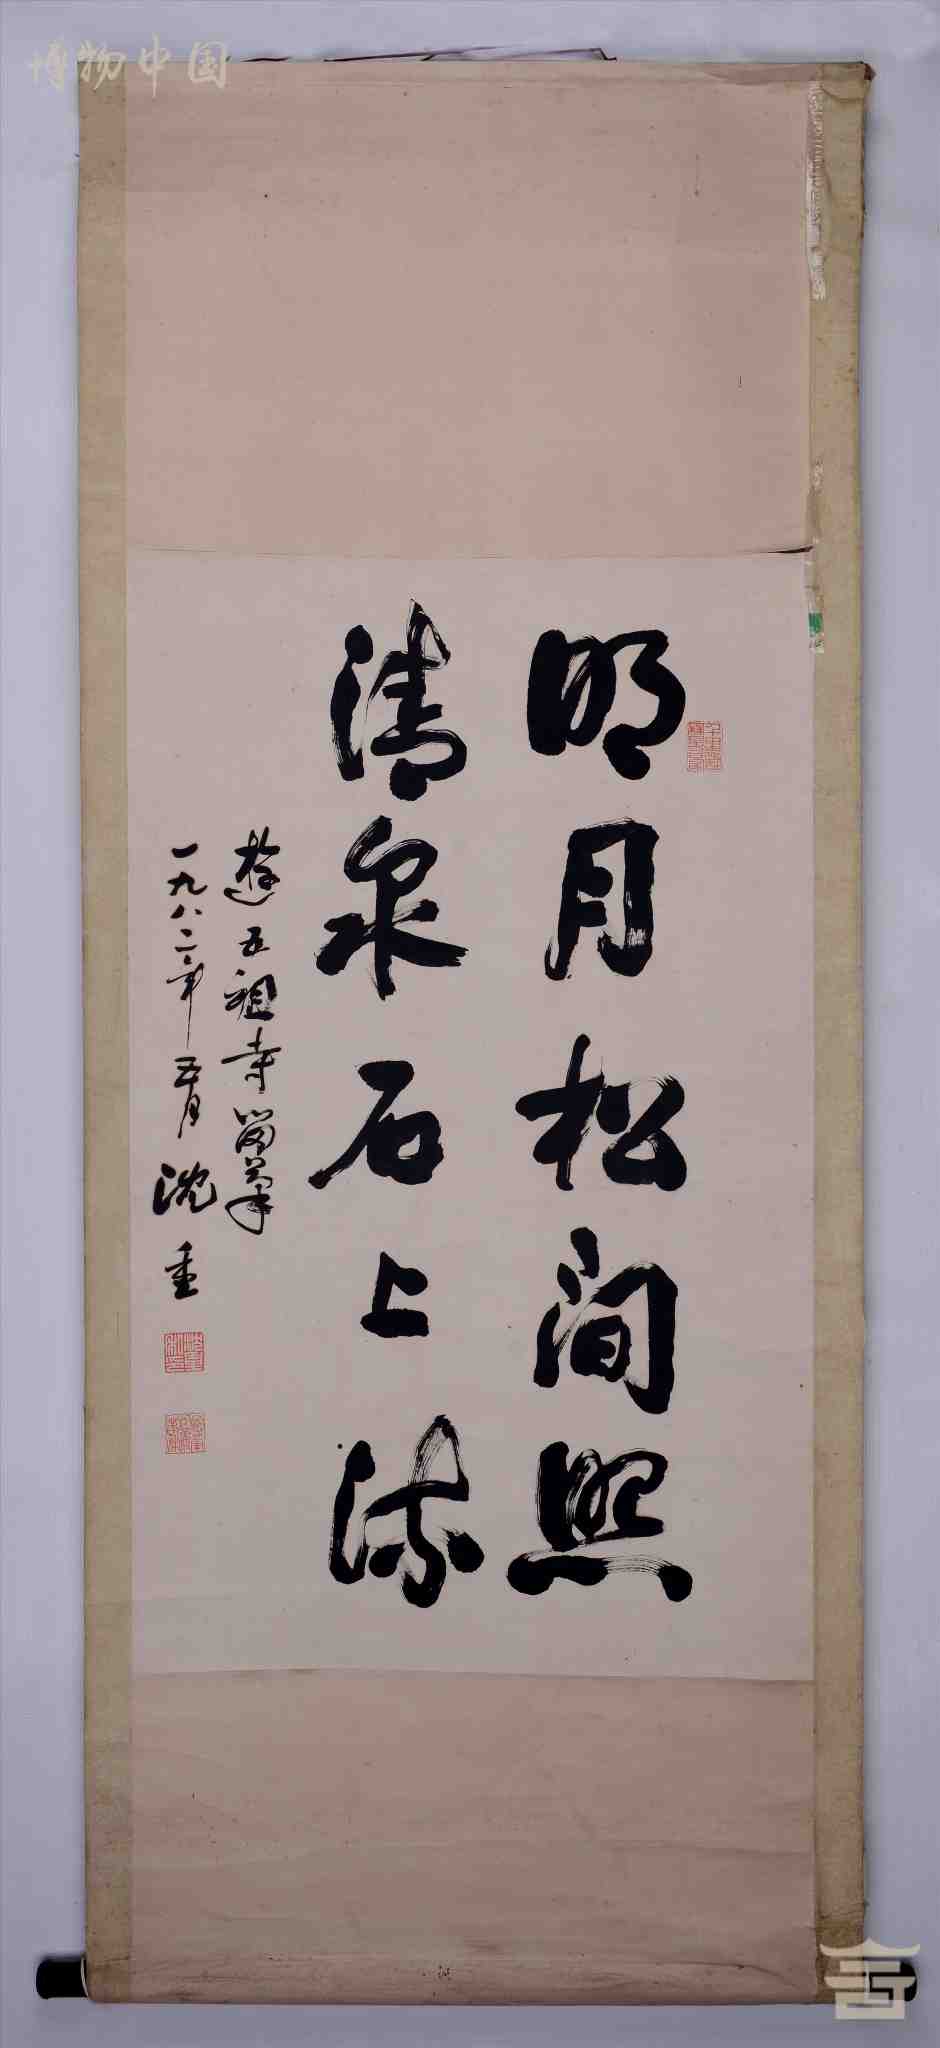 博物中国
明月松间照
清泉石上流
游五祖寺留笔
一九八二年五月 沈重